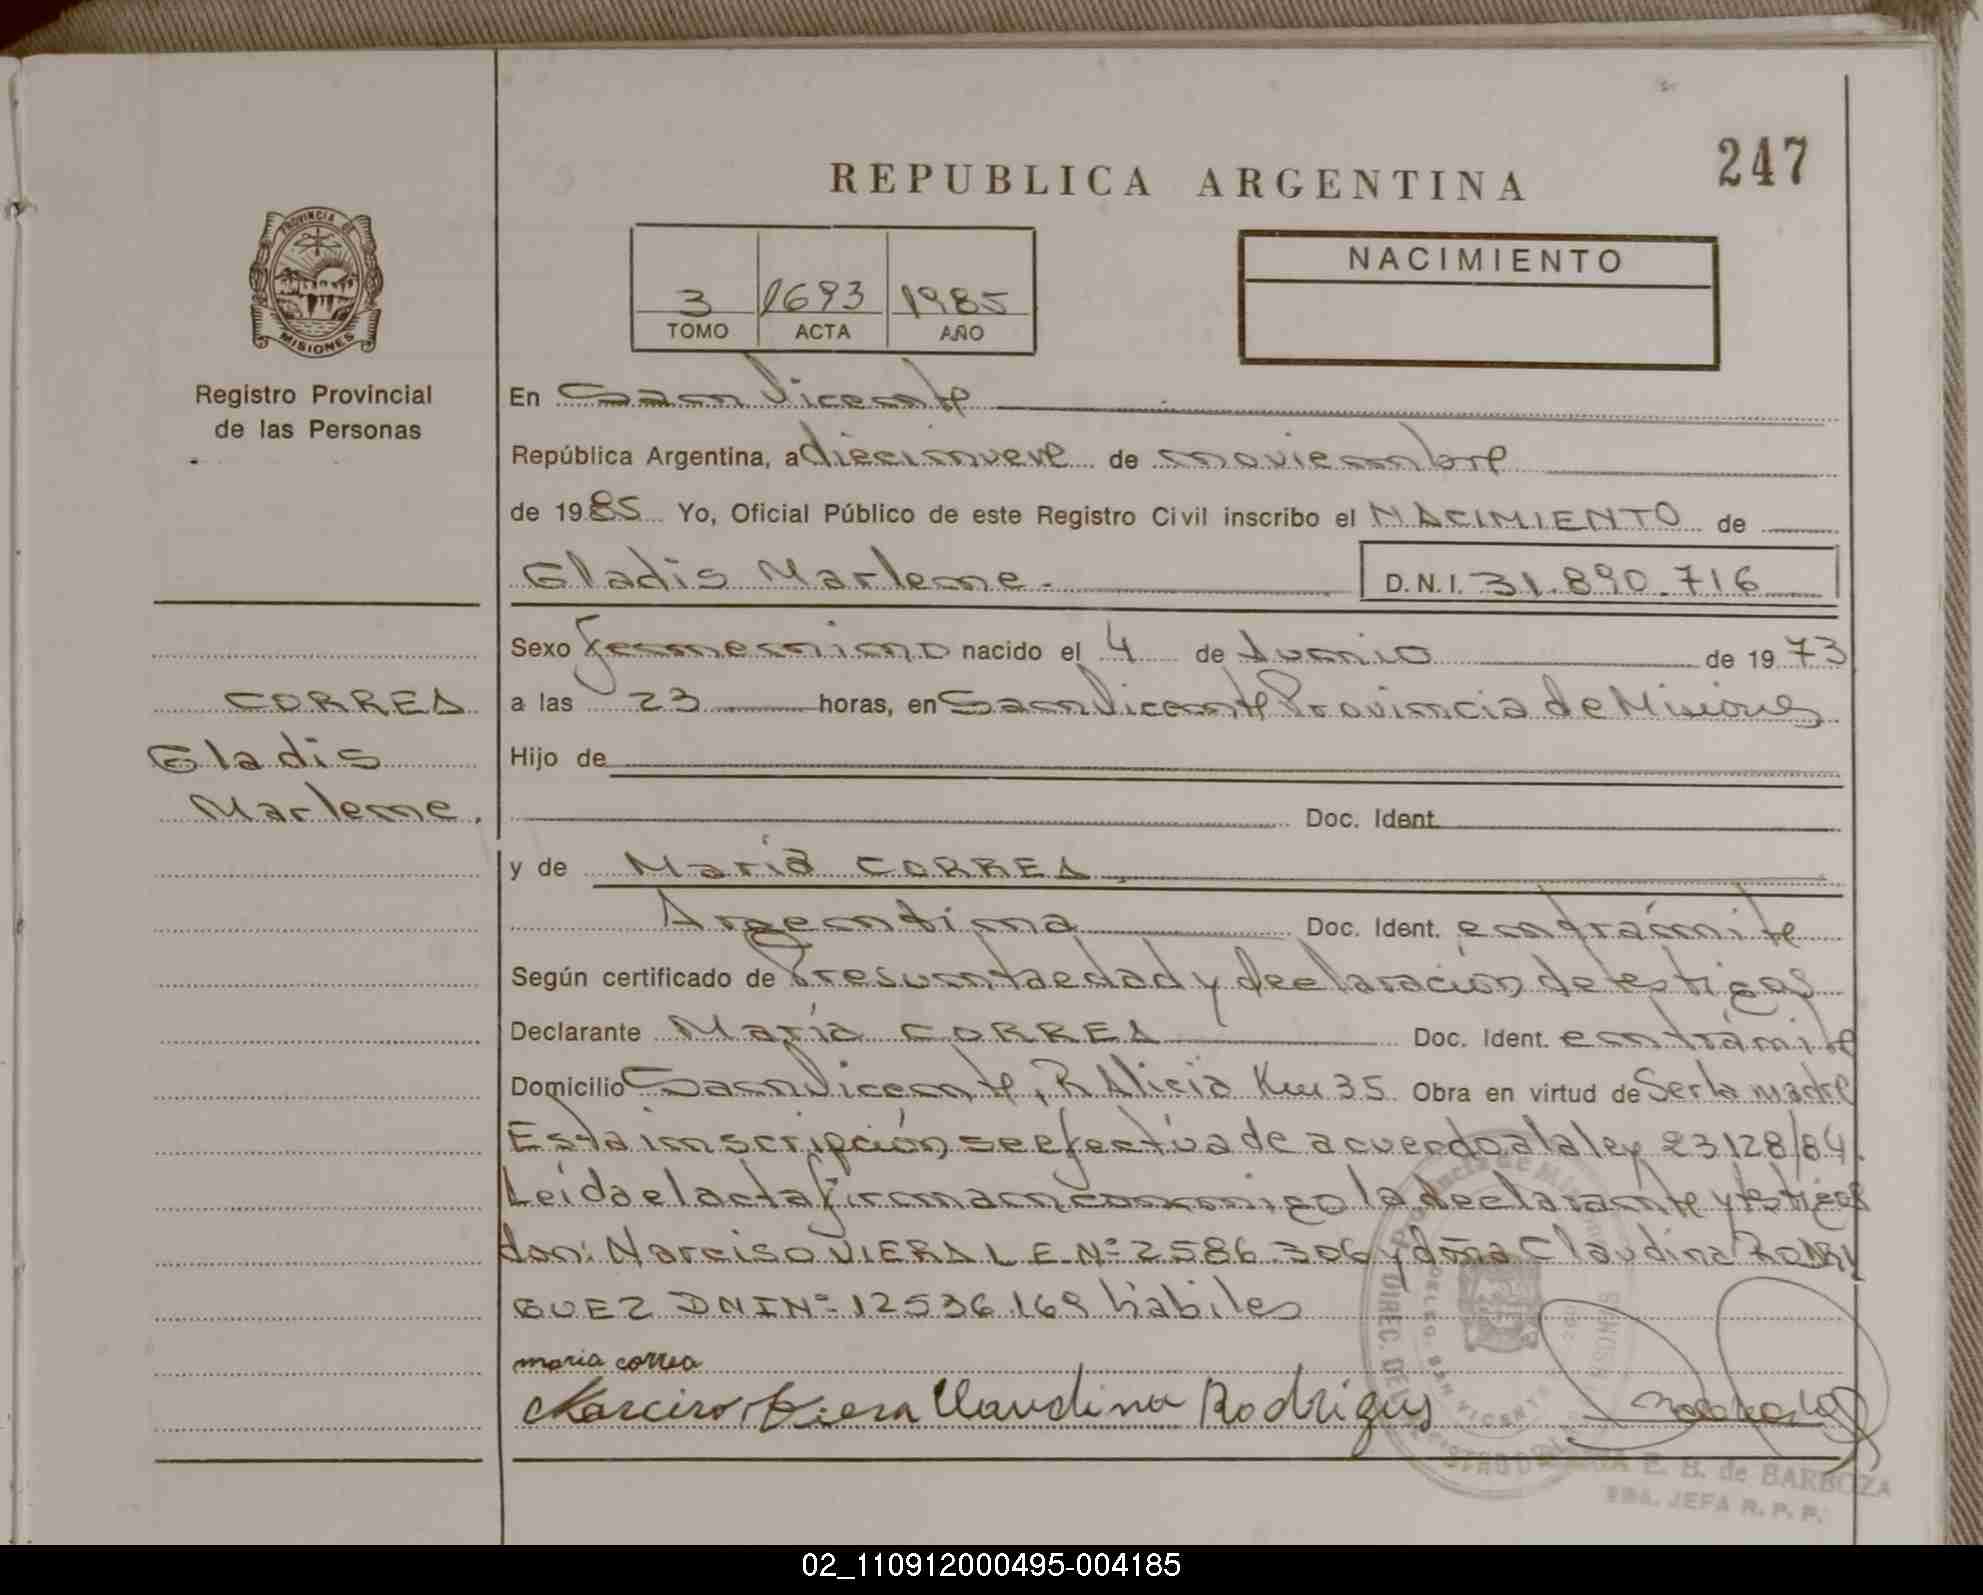 247
REPUBLICA ARGENTINA
NACIMIENTO
3 1693 1985
TOMO ACTA AÑO
PROVINCIA DE
MISIONES
Registro Provincial
de las Personas
CORREA
Gladis
Marlene.
En San Vicente
República Argentina, a diecinueve de noviembre
de 1985 Yo, Oficial Público de este Registro Civil inscribo el NACIMIENTO de
Gladis Marlene.- D.N.I. 31.890.716
Sexo femenino nacido el 4 de Junio de 1973
a las 23 horas, en San Vicente Provincia de Misiones
Hijo de
Doc. Ident.
y de María CORREA
Argentina Doc. Ident. en trámite
Según certificado de Presunta edad y declaración de testigos
Declarante María CORREA Doc. Ident. en trámite
Domicilio San Vicente, R. Alicia Km 35 Obra en virtud de Ser la madre
Esta inscripción se efectúa de acuerdo a la ley 23128/84.
Leída el acta firman conmigo la declarante y testigos
don: Narciso VIERA L E Nº 2586.306 y doña Claudina RODRI
GUEZ DNI Nº 12536.169 hábiles
maria correa
Narciso Viera Claudina Rodrigues
E. B. de BARBOZA
JEFA R. P. P.
02_110912000495-004185